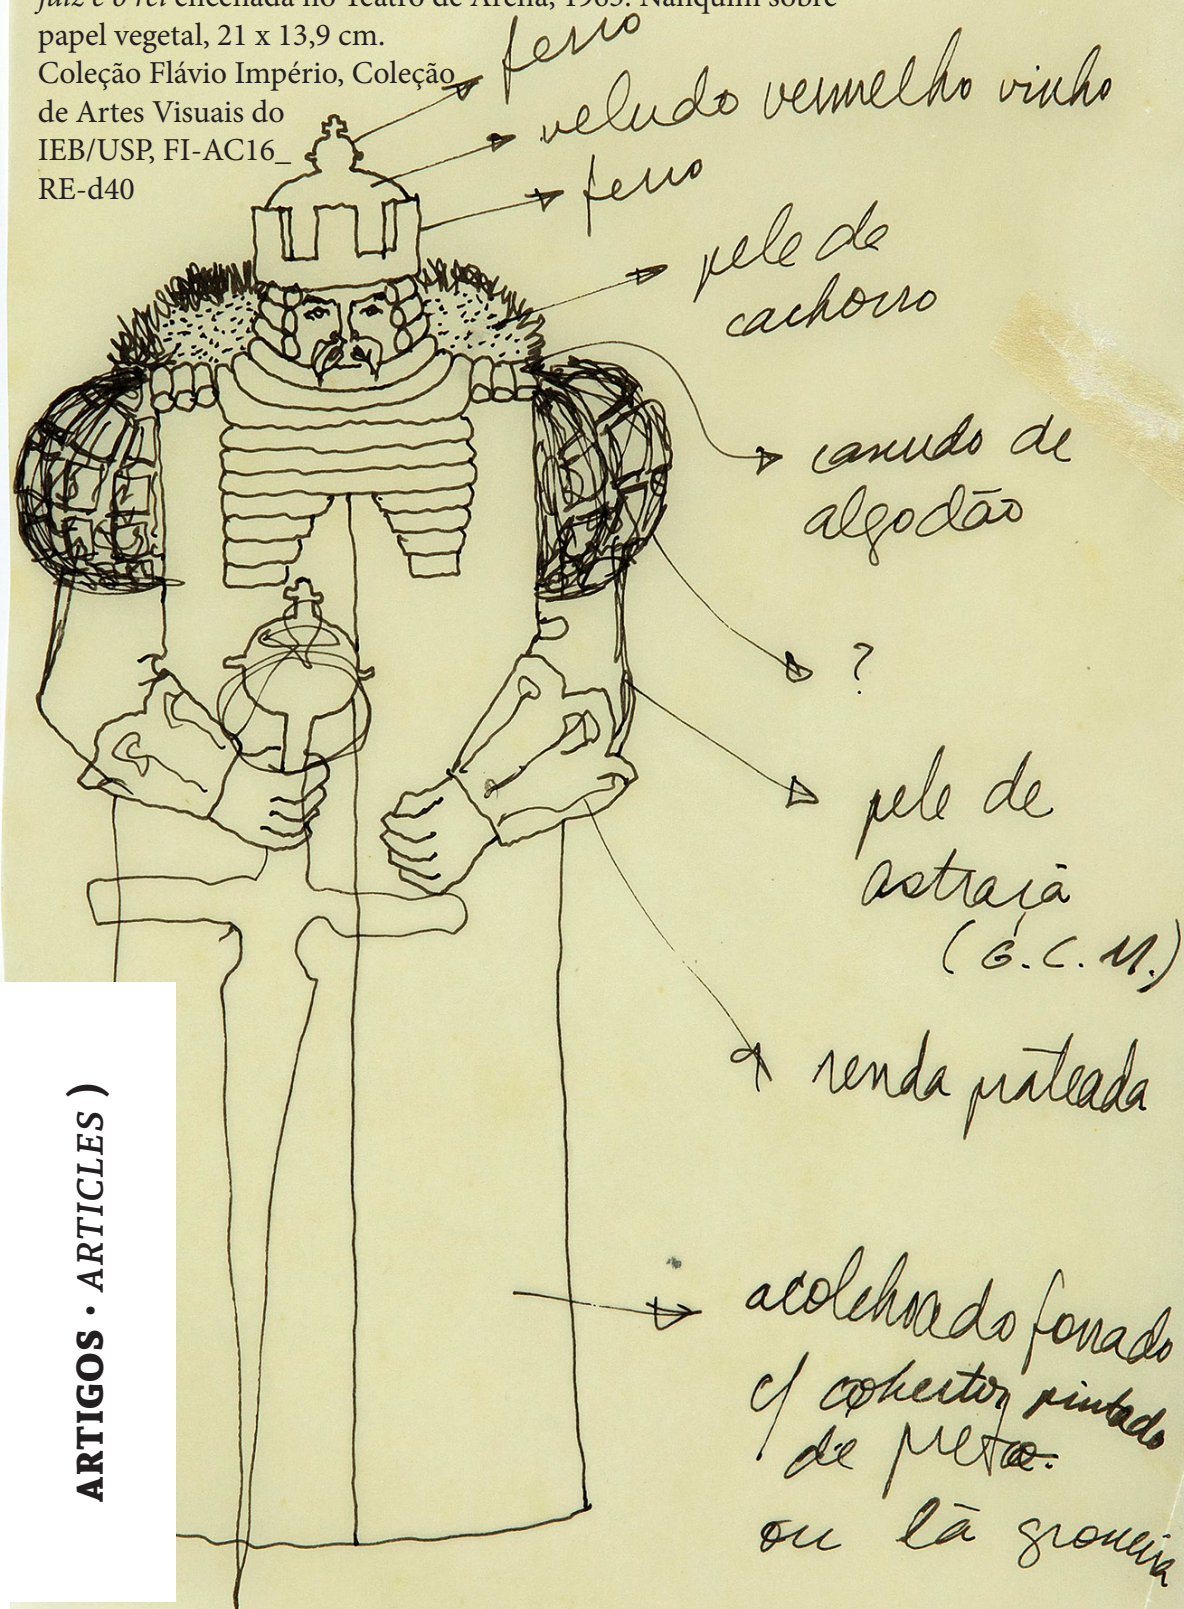 juiz e o rei encenada no Teatro de Arena, 1963. Nanquim sobre
papel vegetal, 21 x 13,9 cm.
Coleção Flávio Império, Coleção
de Artes Visuais do
IEB/USP, FI-AC16_
RE-d40
ferro
veludo vermelho vinho
ferro
pele de
cachorro
canudo de
algodão
?
pele de
(G.C.M.)
renda prateada
acolchoado forrado
c/ cobertor pintado
de preto.
ou lã grosseira
ARTIGOS • ARTICLES )